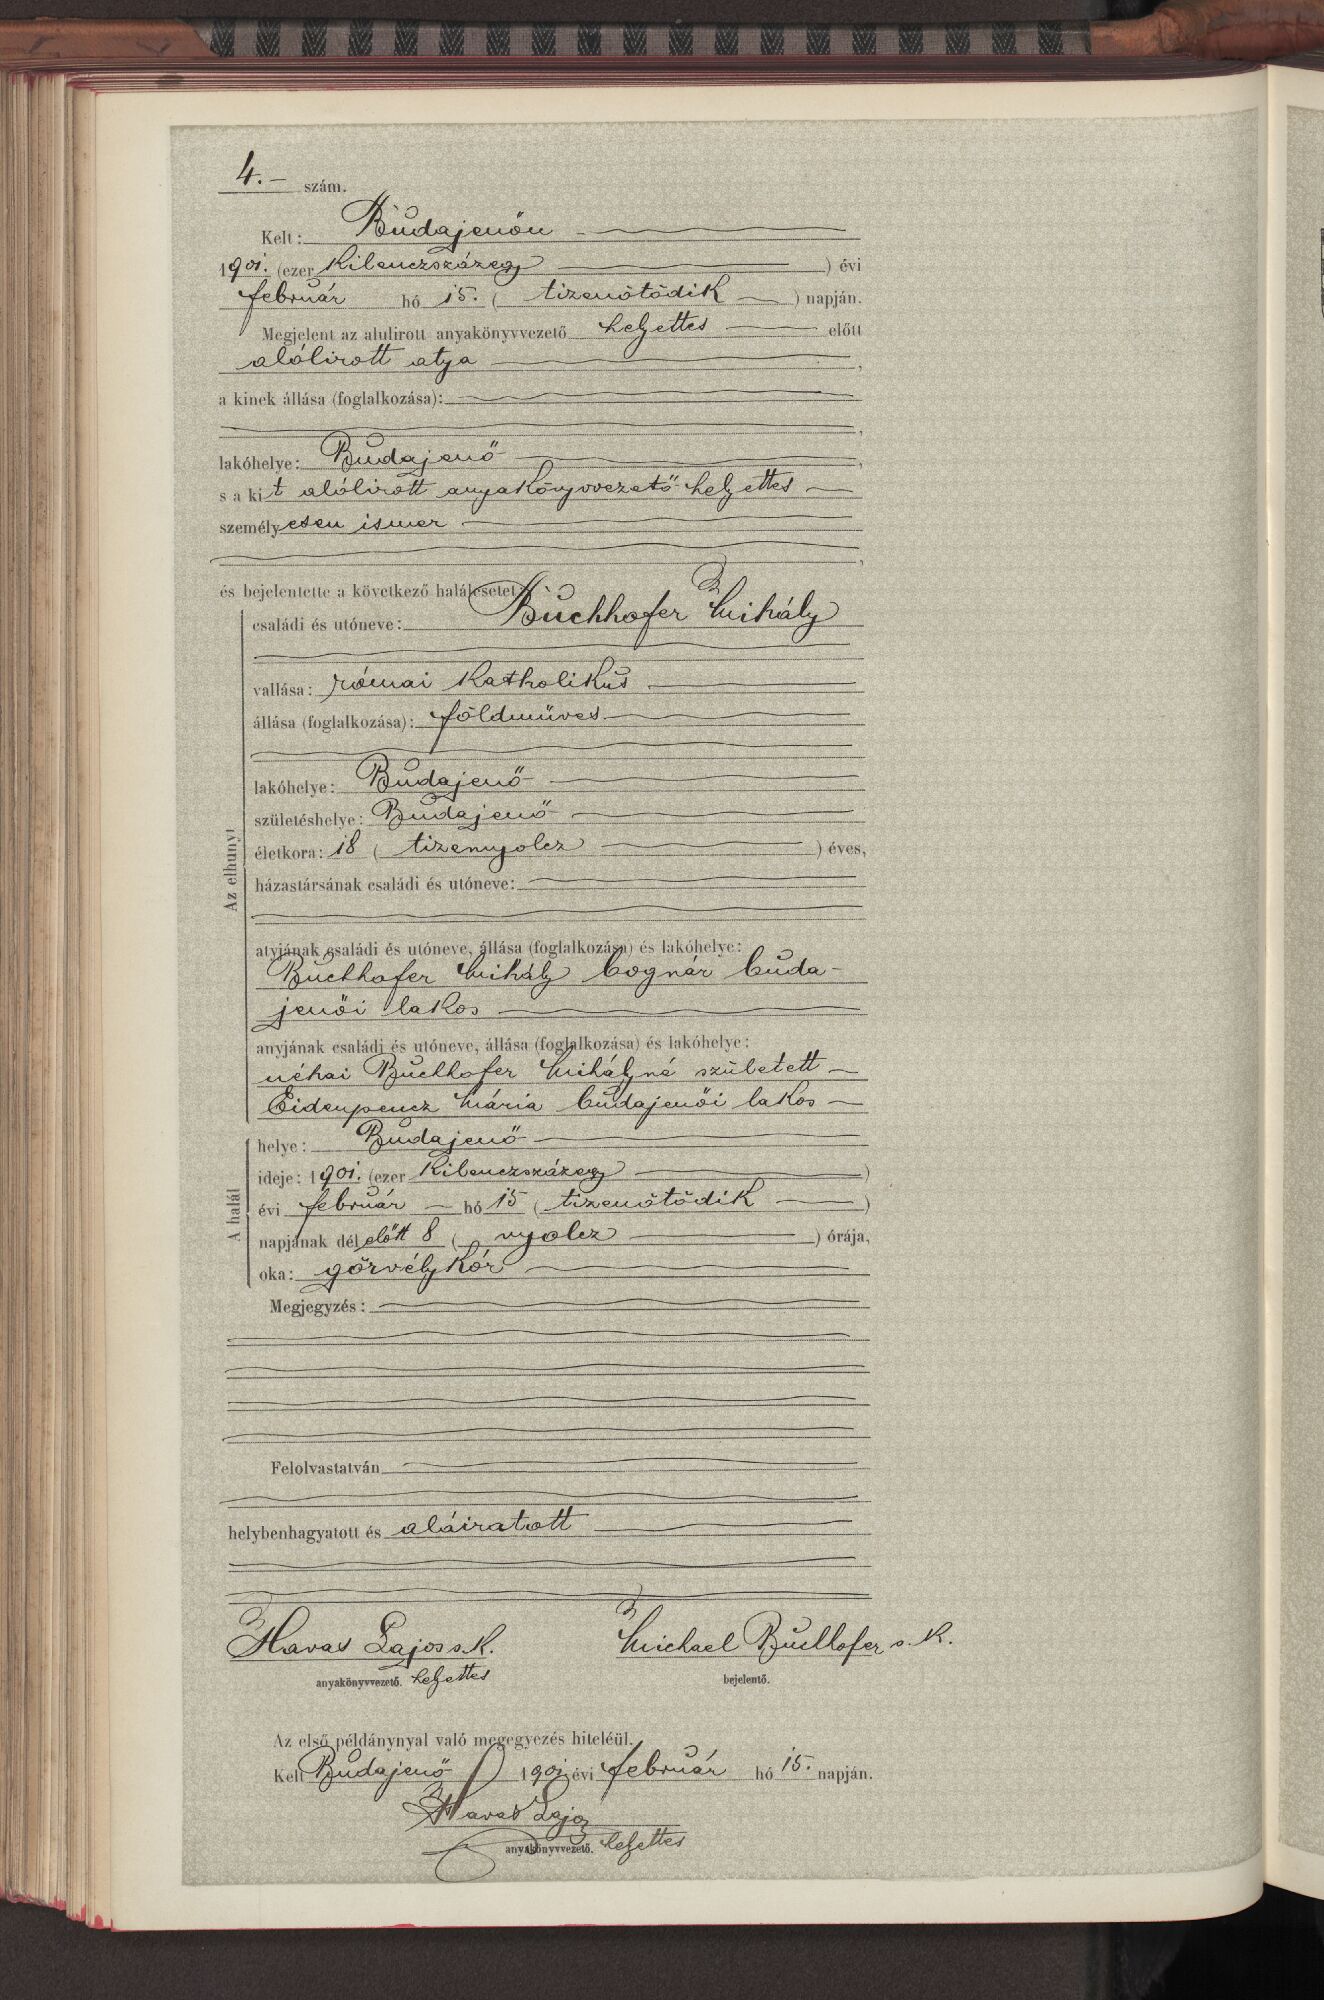 4.- szám.
Kelt: Budajenőn
1901. (ezer kilenczszázegy) évi
február hó 15. (tizenötödik) napján.
Megjelent az alulirott anyakönyvvezető helyettes előtt
alólirott atya,
a kinek állása (foglalkozása):
lakóhelye: Budajenő,
s a kit alólirott anyakönyvvezető-helyettes
személyesen ismer,
és bejelentette a következő halálesetet:
Az elhunyt
családi és utóneve: Buchhofer Mihály
vallása: római katholikus
állása (foglalkozása): földmüves
lakóhelye: Budajenő
születéshelye: Budajenő
életkora: 18 (tizennyolcz) éves,
házastársának családi és utóneve:
atyjának családi és utóneve, állása (foglalkozása) és lakóhelye:
Buchhofer Mihály bognár buda-
jenői lakos
anyjának családi és utóneve, állása (foglalkozása) és lakóhelye:
néhai Buchhofer Mihályné született
Eidenpencz Mária budajenői lakos
A halál
helye: Budajenő
ideje: 1901. (ezer kilenczszázegy)
évi február hó 15 (tizenötödik)
napjának dél előtt 8 (nyolcz) órája,
oka: görvélykór
Megjegyzés:
Felolvastatván
helybenhagyatott és aláiratott
Havas Lajos s. k. Michael Buchhofer s. k.
anyakönyvvezető. helyettes bejelentő.
Az első példánynyal való megegyezés hiteléül.
Kelt Budajenő 1901 évi február hó 15. napján.
Havas Lajos
anyakönyvvezető. helyettes